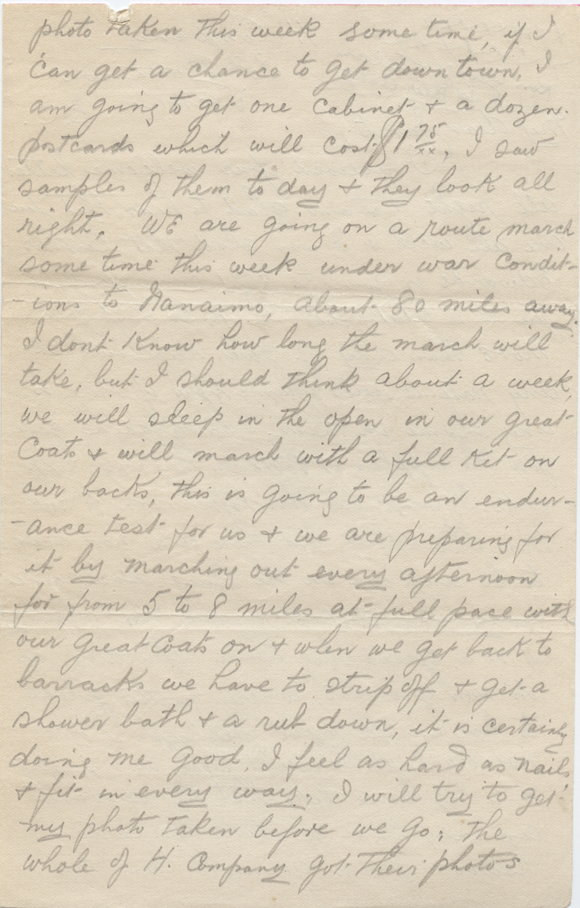 photo taken this week some time, if I
can get a chance to get down town, I
am going to get one cabinet & a dozen
postcards which will cost $1 75/xx. I saw
samples of them to day & they look all
right. WE are going on a route march
some time this week under war condit-
-ions to Nanaimo, about 80 miles away.
I dont know how long the march will
take, but I should think about a week,
we will sleep in the open in our great
Coats & will march with a full Kit on
our backs, this is going to be an endur-
-ance test for us & we are preparing for
it by marching out every afternoon
for from 5 to 8 miles at full pace with
our great coats on & when we get back to
barracks we have to strip off & get a
shower bath & a rub down, it is certainly
doing me good, I feel as hard as nails
& fit in every way. I will try to get
my photo taken before we go; the
whole of H. Company got their photos